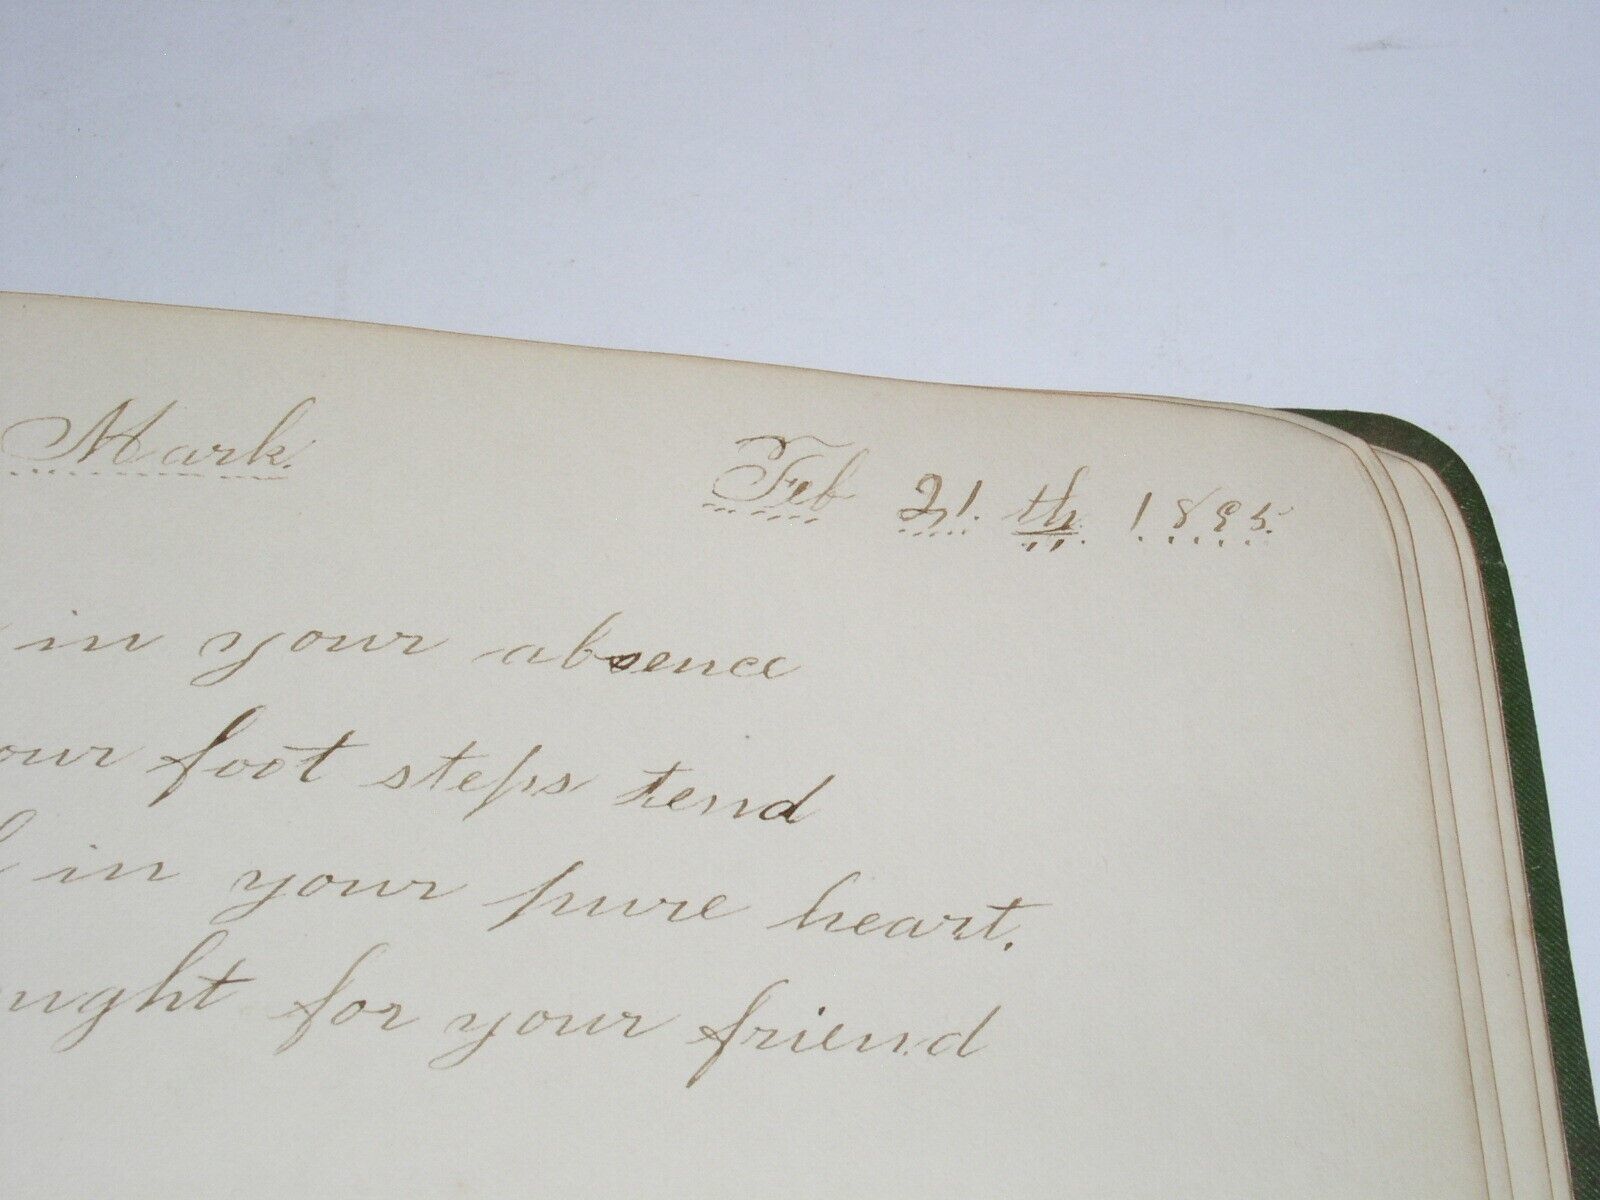 Mark. Feb 21. th. 1895.
in your absence
our foot steps tend
in your pure heart.
ought for your friend